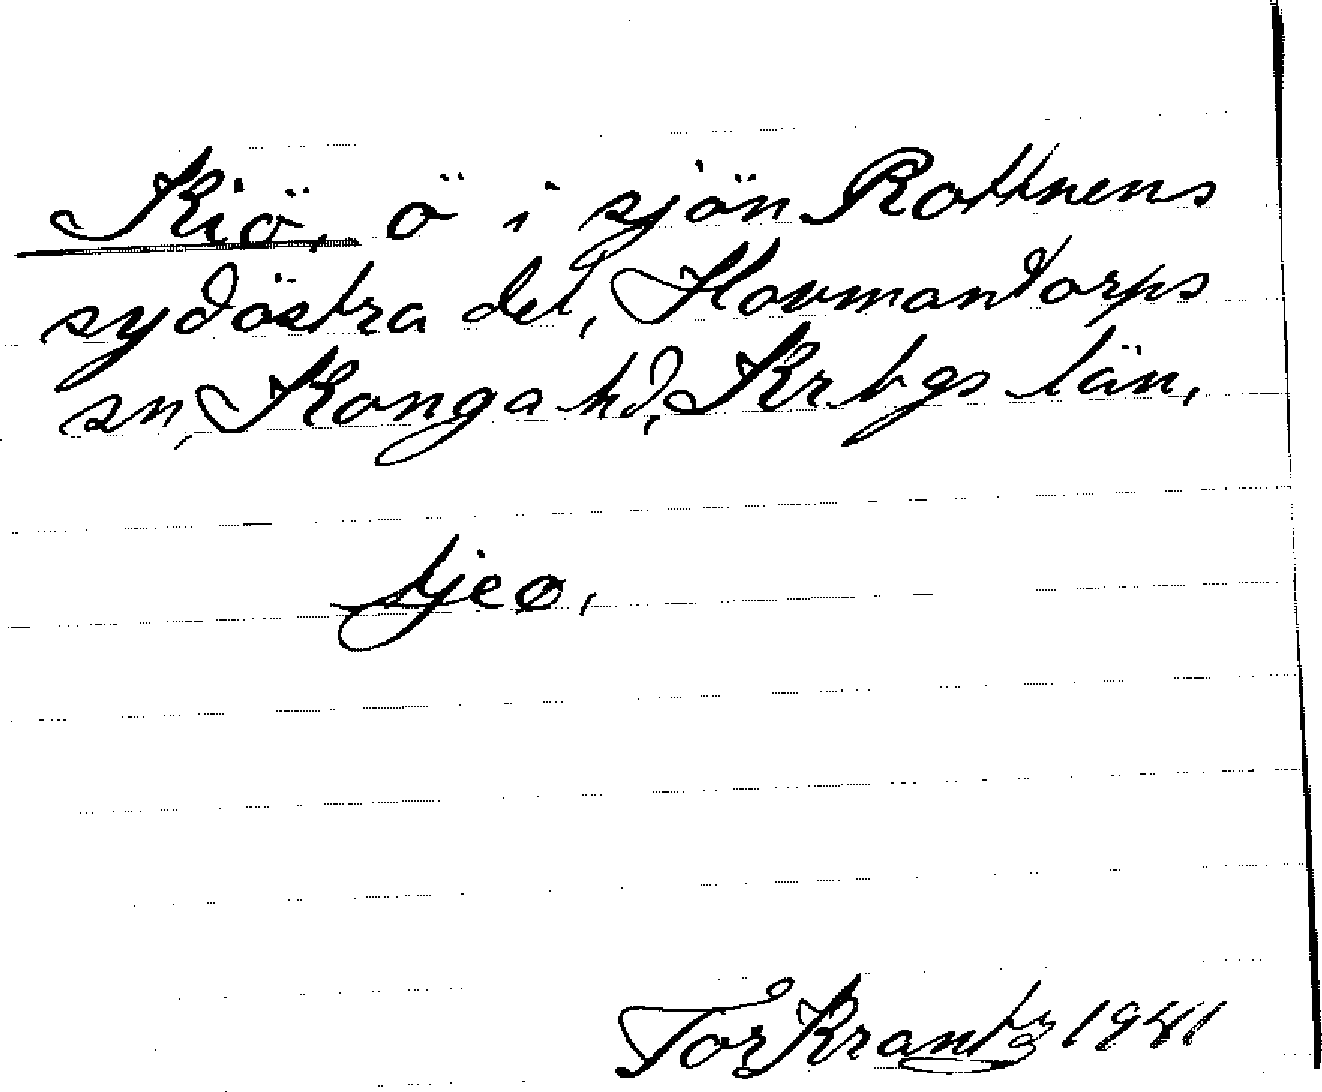 Kiö, ö i sjön Rottnens
sydöstra del, Hovmantorps
sn, Konga hd, Krbgs län.
tjeø.
Tor Krantz 1941